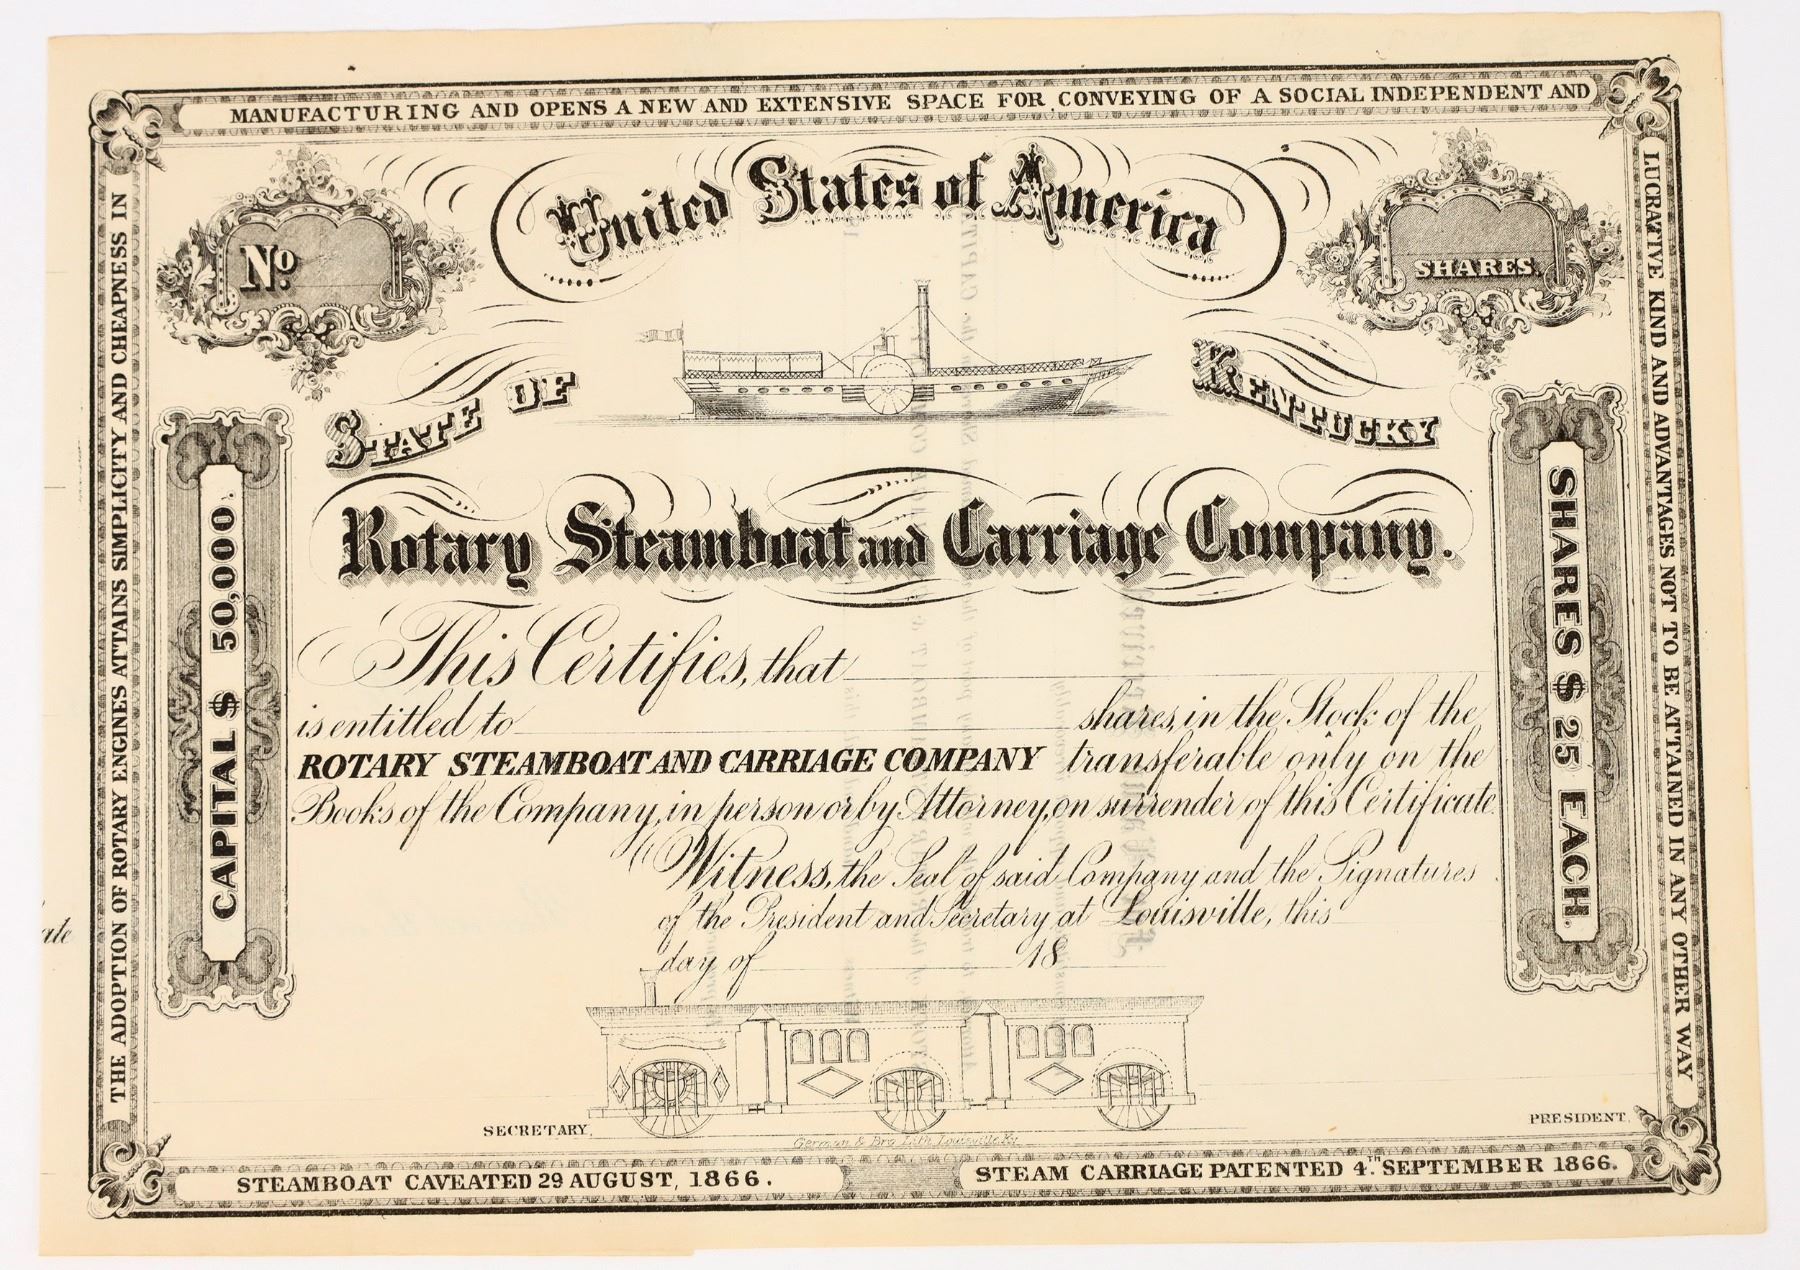 THE ADOPTION OF ROTARY ENGINES ATTAINS SIMPLICITY AND CHEAPNESS IN
MANUFACTURING AND OPENS A NEW AND EXTENSIVE SPACE FOR CONVEYING OF A SOCIAL INDEPENDENT AND
LUCRATIVE KIND AND ADVANTAGES NOT TO BE ATTAINED IN ANY OTHER WAY
No.
United States of America
SHARES.
STATE OF
KENTUCKY
CAPITAL $ 50,000.
SHARES $ 25 EACH.
Rotary Steamboat and Carriage Company.
This Certifies, that
is entitled to shares, in the Stock of the
ROTARY STEAMBOAT AND CARRIAGE COMPANY transferable only on the
Books of the Company, in person or by Attorney, on surrender of this Certificate.
Witness, the Seal of said Company and the Signatures
of the President and Secretary at Louisville, this
day of 18
SECRETARY.
PRESIDENT.
German & Bro. Lith. Louisville, Ky.
STEAMBOAT CAVEATED 29 AUGUST, 1866.
STEAM CARRIAGE PATENTED 4TH SEPTEMBER 1866.